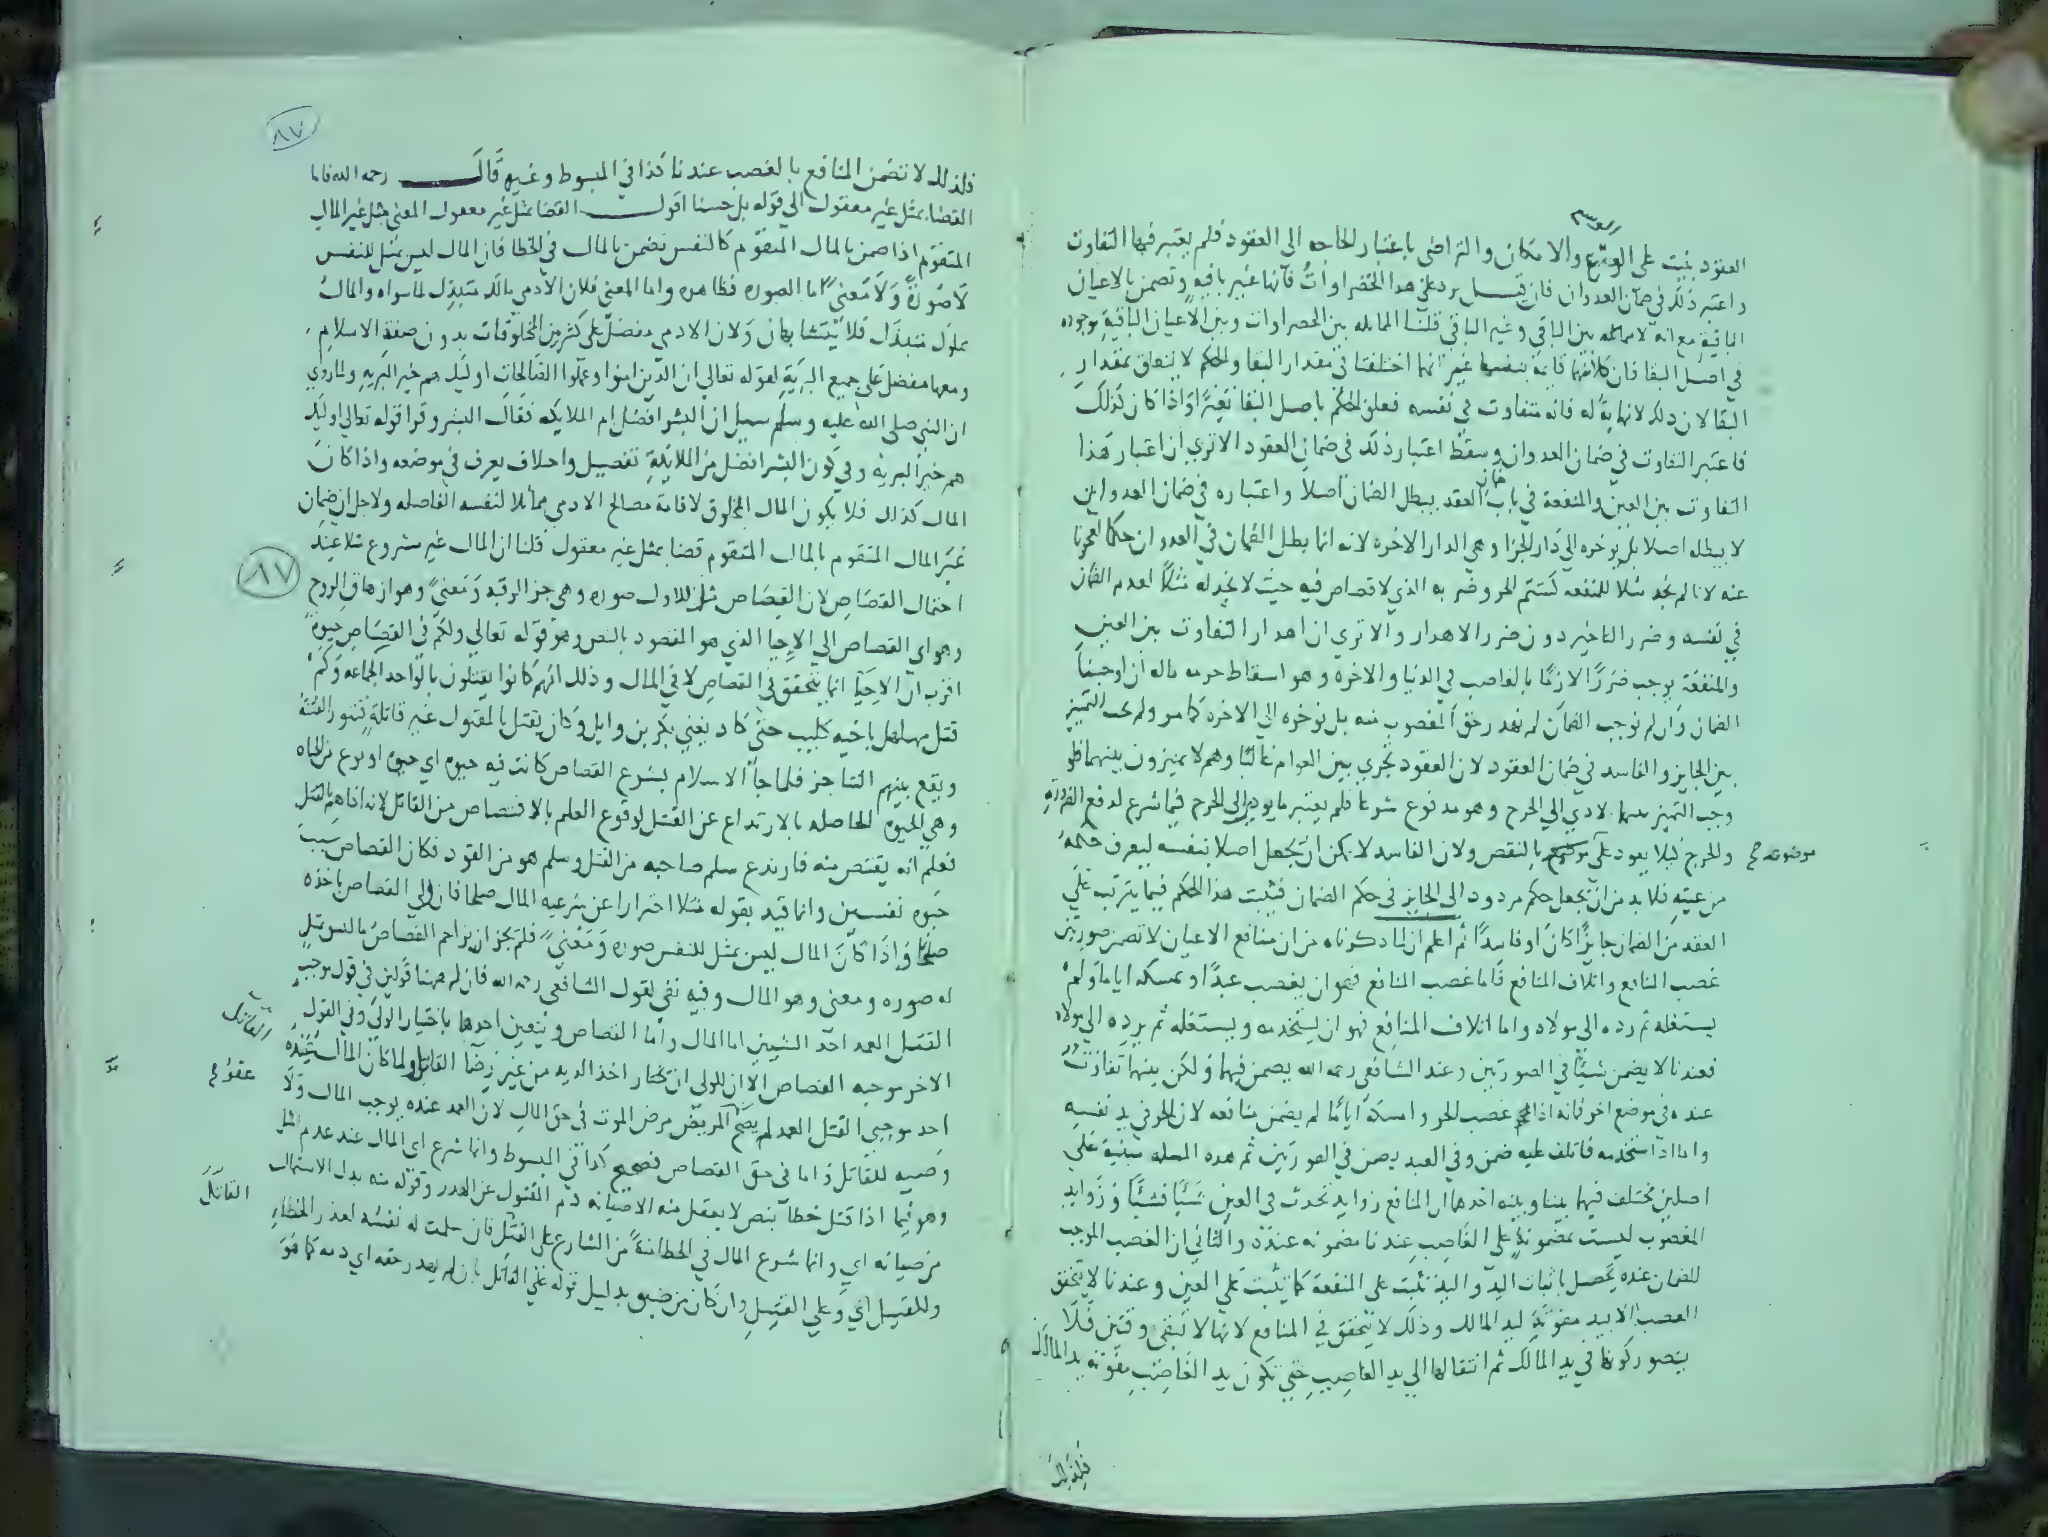 العقود يثبت على الوسع والامكان والتراضى باعتبار الحاجه الى العقود فلم يعتبر فيها التفاوت
واعتبر ذلك في ضمان العدوان فان قيل يرد على هذا الخضراوات فانها غير باقيه وتضمن بالاعيان
الباقية مع انه لا مماثله بين الباقي وغير الباقي قلنا المماثله بين الخضراوات وبين الاعيان الباقية موجوده
في اصل البقا فان كلا منهما قايمة بنفسها غير انهما اختلفتا في مقدار البقا والحكم لا يتعلق بمقدار
البقا لان ذلك لا نهاية له فانه متفاوت في نفسه فعلق الحكم باصل البقا تيسيرا واذا كان كذلك
فاعتبر التفاوت في ضمان العدوان وسقط اعتبار ذلك في ضمان العقود الا ترى ان اعتبار هذا
التفاوت بين العين والمنفعة في باب ضمان العقد يبطل الضمان اصلا واعتباره في ضمان العدوان
لا يبطله اصلا بل يوخره الى دار الجزا وهي الدار الاخره لانه انما بطل الضمان في العدوان حكما لعجزنا
عنه لانا لم نجد مثلا للمنفعه كشتم الحر وضربه الذي لا قصاص فيه حيث لا يجد له مثلا لعدم الضمان
في نفسه وضرر التاخير دون ضرر الاهدار والا ترى ان اهدار التفاوت بين العين
والمنفعة يوجب ضررا لازما بالغاصب في الدنيا والاخرة وهو اسقاط حرمه ماله ان اوجبنا
الضمان وان لم نوجب الضمان لم نهدر حق المغصوب منه بل نوخره الى الاخره كما مر ولم يجب التميز
بين الجايز والفاسد في ضمان العقود لان العقود تجري بين العوام غالبا وهم لا يميزون بينهما فلو
وجب التميز بينهما لادي الى الحرج وهو مدفوع شرعا فلم يعتبر ما يودي الى الحرج فيما شرع لدفع الضرورة
والحرج ليلا يعود على موضوعه بالنقض ولان الفاسد لا يمكن ان يجعل اصلا بنفسه ليعرف حكمه
موضوعه صح
من عينه فلا بد من ان يجعل حكم مردود الى الجايز في حكم الضمان فيثبت هذا الحكم فيما يترتب على
العقد من الضمان جايزا كان او فاسدا ثم اعلم ان ما ذكرناه من ان منافع الاعيان لا تضمن صورتين
غصب المنافع واتلاف المنافع فاما غصب المنافع فهو ان يغصب عبدا ويمسكه اياما ولم
يستغله ثم رده الى مولاه واما اتلاف المنافع فهو ان يستخدمه ويستغله ثم يرده الى مولاه
فعندنا لا يضمن شيئا في الصورتين وعند الشافعي رحمه الله يضمن فيهما ولكن بينهما تفاوت
عنده في موضع اخر فانه اذا غصب الحر وامسكه اياما لم يضمن منافعه لان الحر في يد نفسه
واما اذا استخدمه فاتلف عليه ضمن وفي العبد يضمن في الصورتين ثم هذه المسله مبنية على
اصلين مختلف فيهما بيننا وبينه احدهما ان المنافع زوايد تحدث في العين شيئا فشيئا وزوايد
المغصوب ليست بمضمونة على الغاصب عندنا مضمونه عنده والثاني ان الغصب الموجب
للضمان عنده يحصل باثبات اليد واليد تثبت على المنفعة كما تثبت على العين وعندنا لا يتحقق
الغصب الا بيد مفوتة ليد المالك وذلك لا يتحقق في المنافع لانها لا تبقى وقتين فلا
يتصور كونها في يد المالك ثم انتقالها الى يد الغاصب حتى تكون يد الغاصب مفوته يد المالك
فلذلك
٨٧
فلذلك لا تضمن المنافع بالغصب عندنا كذا في المبسوط وغيره قال رحمه الله فاما
القضاء بمثل غير معقول الى قوله بل حسنا اقول القضا بمثل غير معقول المعنى مثل غير المال
المتقوم اذا ضمن بالمال المتقوم كالنفس تضمن بالمال في الخطا فان المال ليس بمثل للنفس
لا صورة ولا معنى اما الصوره فظاهره واما المعنى فلان الادمي مالك متبذل لما سواه والمال
مملوك متبذل فلا يتشابهان ولان الادمي مفضل على كثير من المخلوقات بدون صفة الاسلام
ومعها مفضل على جميع البرية لقوله تعالى ان الذين امنوا وعملوا الصالحات اوليك هم خير البرية ولما روي
ان النبي صلى الله عليه وسلم سيل ان البشر افضل ام الملايكه فقال البشر وقرا قوله تعالى اوليك
هم خير البرية وفي كون البشر افضل من الملايكة تفصيل واختلاف يعرف في موضعه واذا كان
المال كذلك فلا يكون المال المخلوق لاقامة مصالح الادمي مماثلا لنفسه الفاضله ولاجل ان ضمان
غير المال المتقوم بالمال المتقوم قضا بمثل غير معقول قلنا ان المال غير مشروع مثلا عند
٨٧
احتمال القصاص لان القصاص مثل للاول صوره وهي جز الرقبة ومعنى وهو ازهاق الروح
وهو اي القصاص الى الاحيا الذي هو المقصود بالنص وهو قوله تعالى ولكم في القصاص حيوة
اقرب ان الاحيا انما يتحقق في القصاص لا في المال وذلك انهم كانوا يقتلون بالواحد الجماعه وكم
قتل مهلهل باخيه كليب حتى كاد يفني بكر بن وايل وكان يقتل بالمقتول غير قاتله فتثور الفتنة
ويقع بينهم التناجز فلما جا الاسلام بشرع القصاص كانت فيه حيوه اي حيوه او نوع من الحياه
وهي الحيوه الحاصله بالارتداع عن القتل لوقوع العلم بالاقتصاص من القاتل لانه اذا هم بالقتل
فعلم انه يقتص منه فارتدع سلم صاحبه من القتل وسلم هو من القود فكان القصاص سبب
حيوه نفسين وانما قيد بقوله مثلا احترازا عن شرعيه المال صلحا فان لولي القصاص ياخذه
صلحا واذا كان المال ليس بمثل للنفس صوره ومعنى فلم يجز ان يزاحم القصاص
له صوره ومعنى وهو المال وفيه نفي لقول الشافعي رحمه الله فان له ههنا قولين في قول موجب
القتل العمد احد الشيين اما المال واما القصاص ويتعين احدهما باختيار الولي وفي القول
القاتل
الاخر موجبه القصاص الا ان للولي ان يختار اخذ الديه من غير رضا القاتل ولما كان المال عنده
عفو صح
احد موجبي القتل العمد لم يصح المريض مرض الموت في حق المال لان العمد عنده يوجب المال ولا
وصيه للقاتل واما في حق القصاص فصحيح كذا في المبسوط وانما شرع اي المال عند عدم المثل
وهو فيما اذا قتل خطا بنص لا يعقل منه الا صيانه دم المقتول عن الهدر وقوله منه بدل الاشتمال
القاتل
من صيانه اي وانما شرع المال في الخطا منة من الشارع على القاتل فان سلمت له نفسه لعذر الخطا
وللقتيل اي وعلى القتيل وان كان من ضيق بدليل قوله على القاتل بان لم يهدر حقه اي دمه كما هو